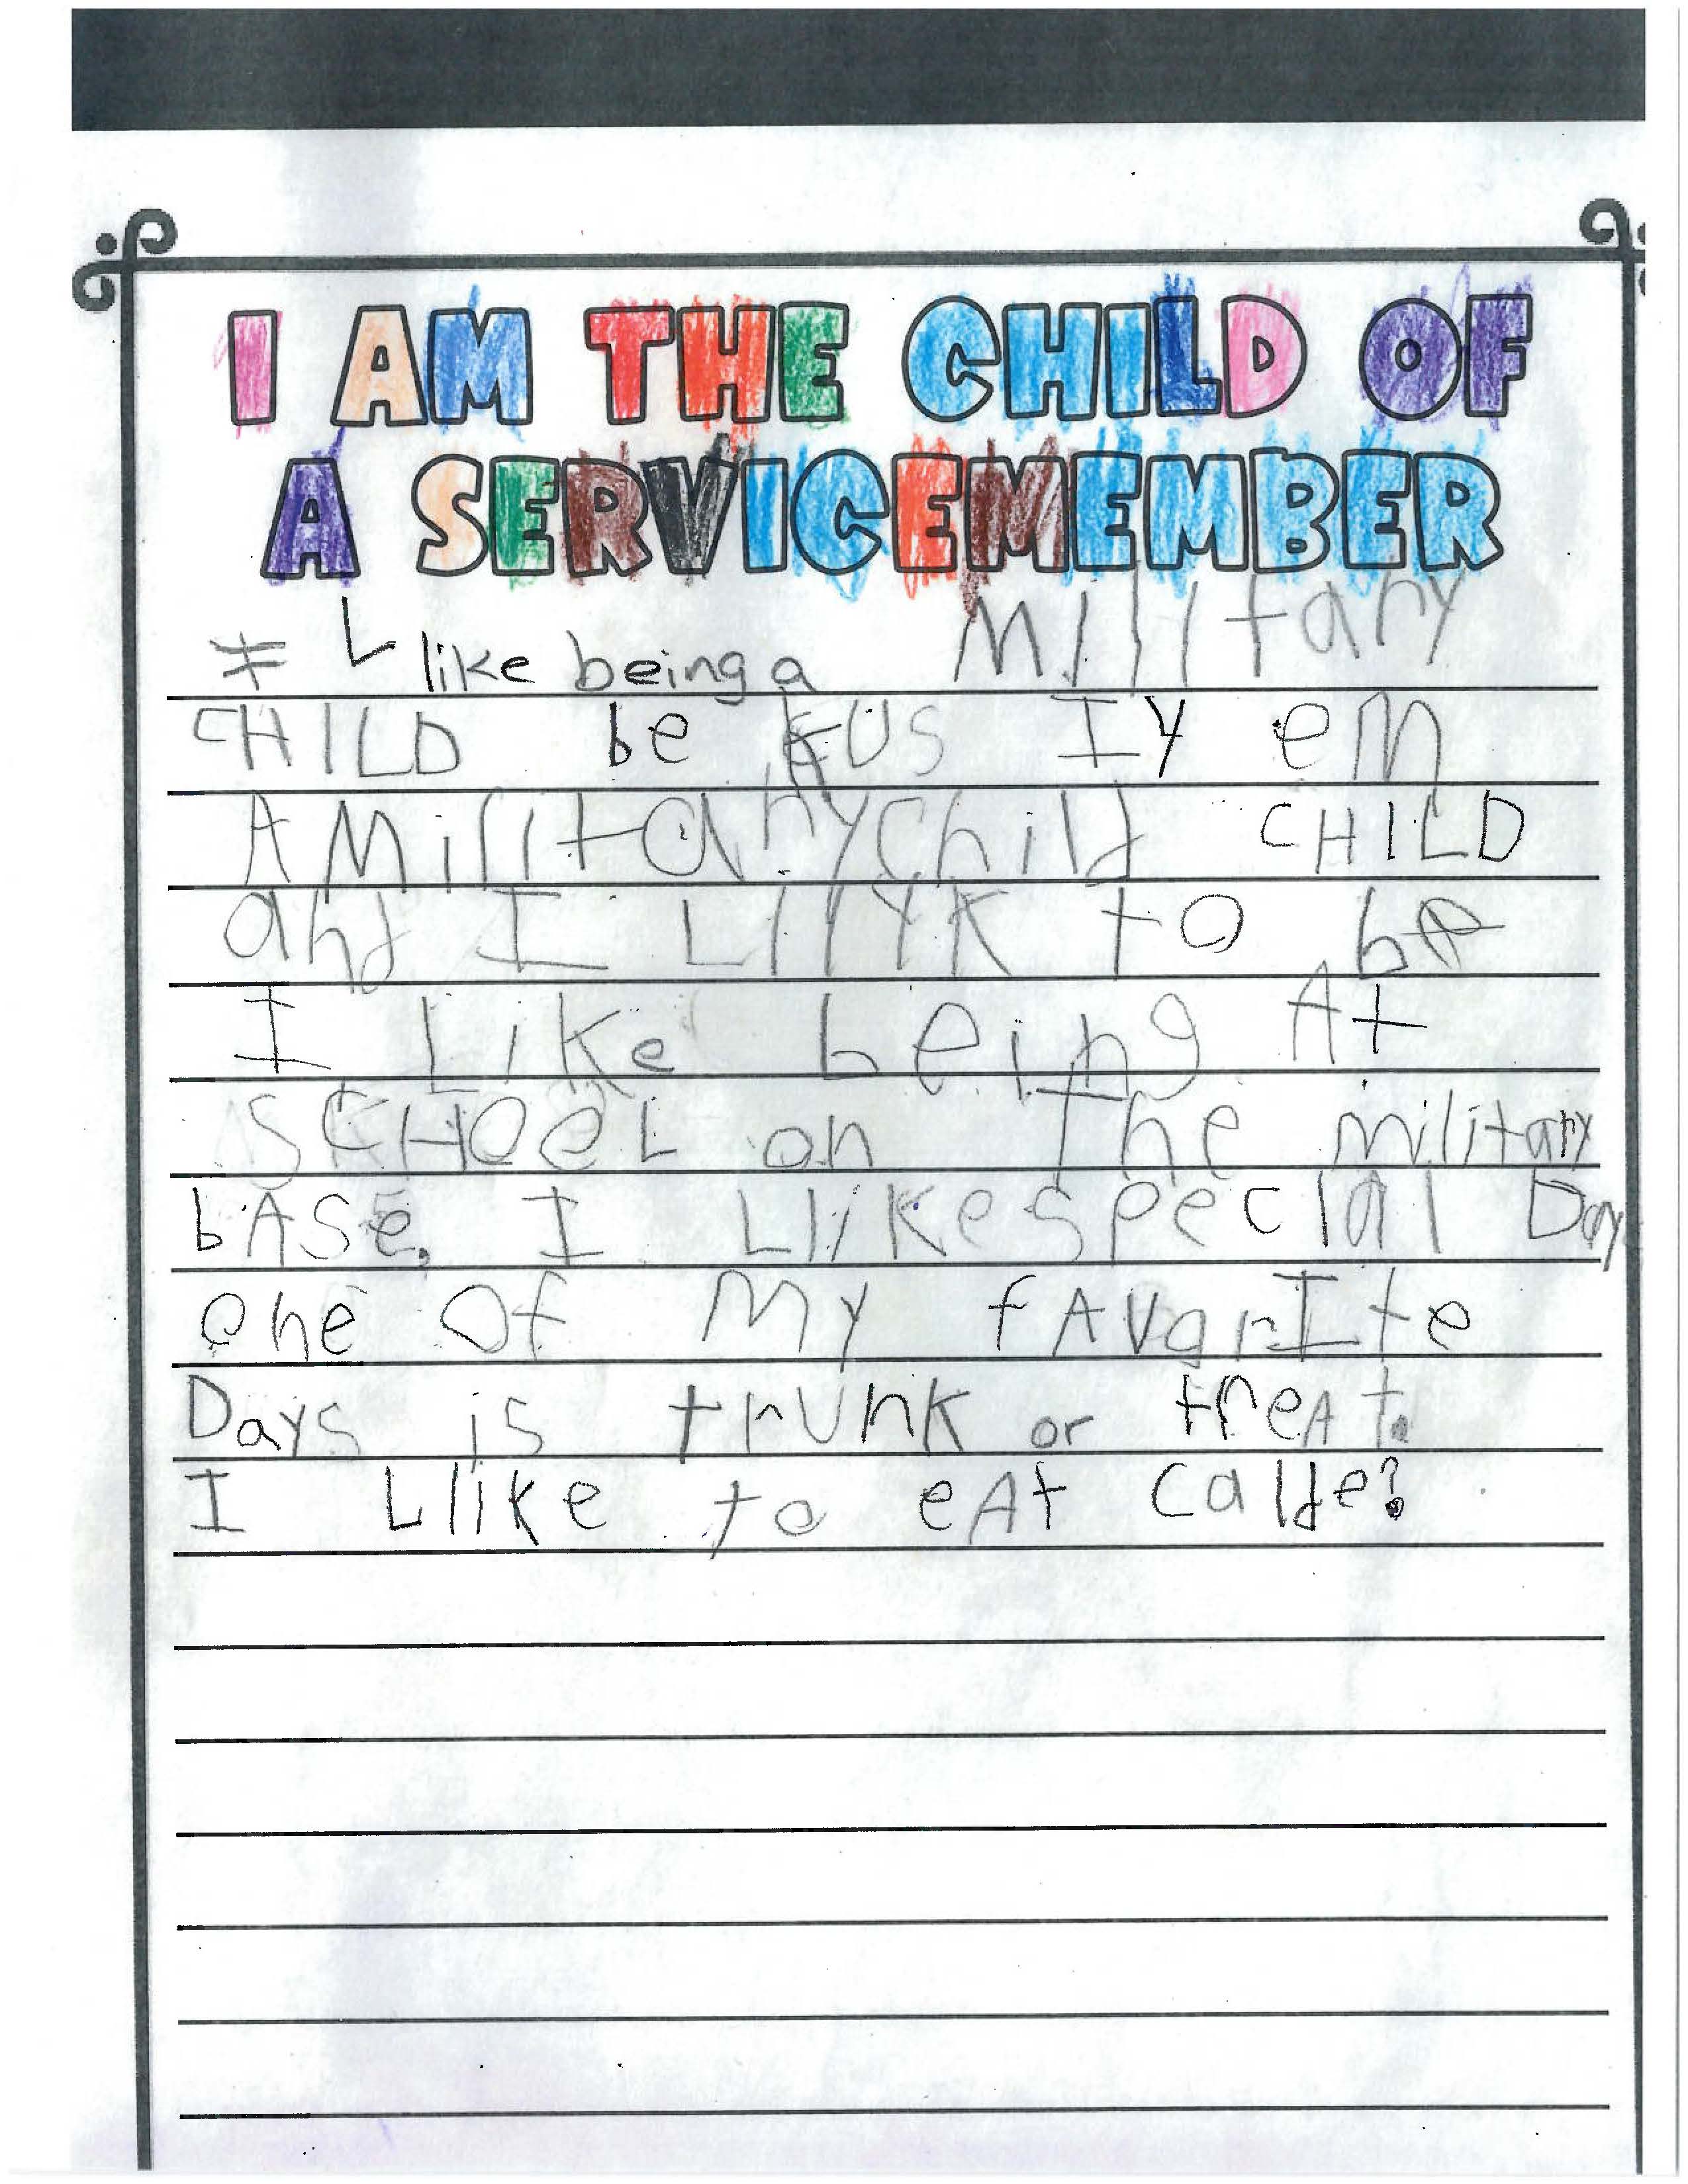 I AM THE CHILD OF
A SERVICEMEMBER
I like being a Military
CHILD be kus Iy em
A Military child CHILD
and I LIIYK to be
I Like being At
SCHOOL on The military
bASe. I LlikeSpecial Day
one Of My fAvorIte
Days is trunk or treAt.
I Llike to eAt Calde?